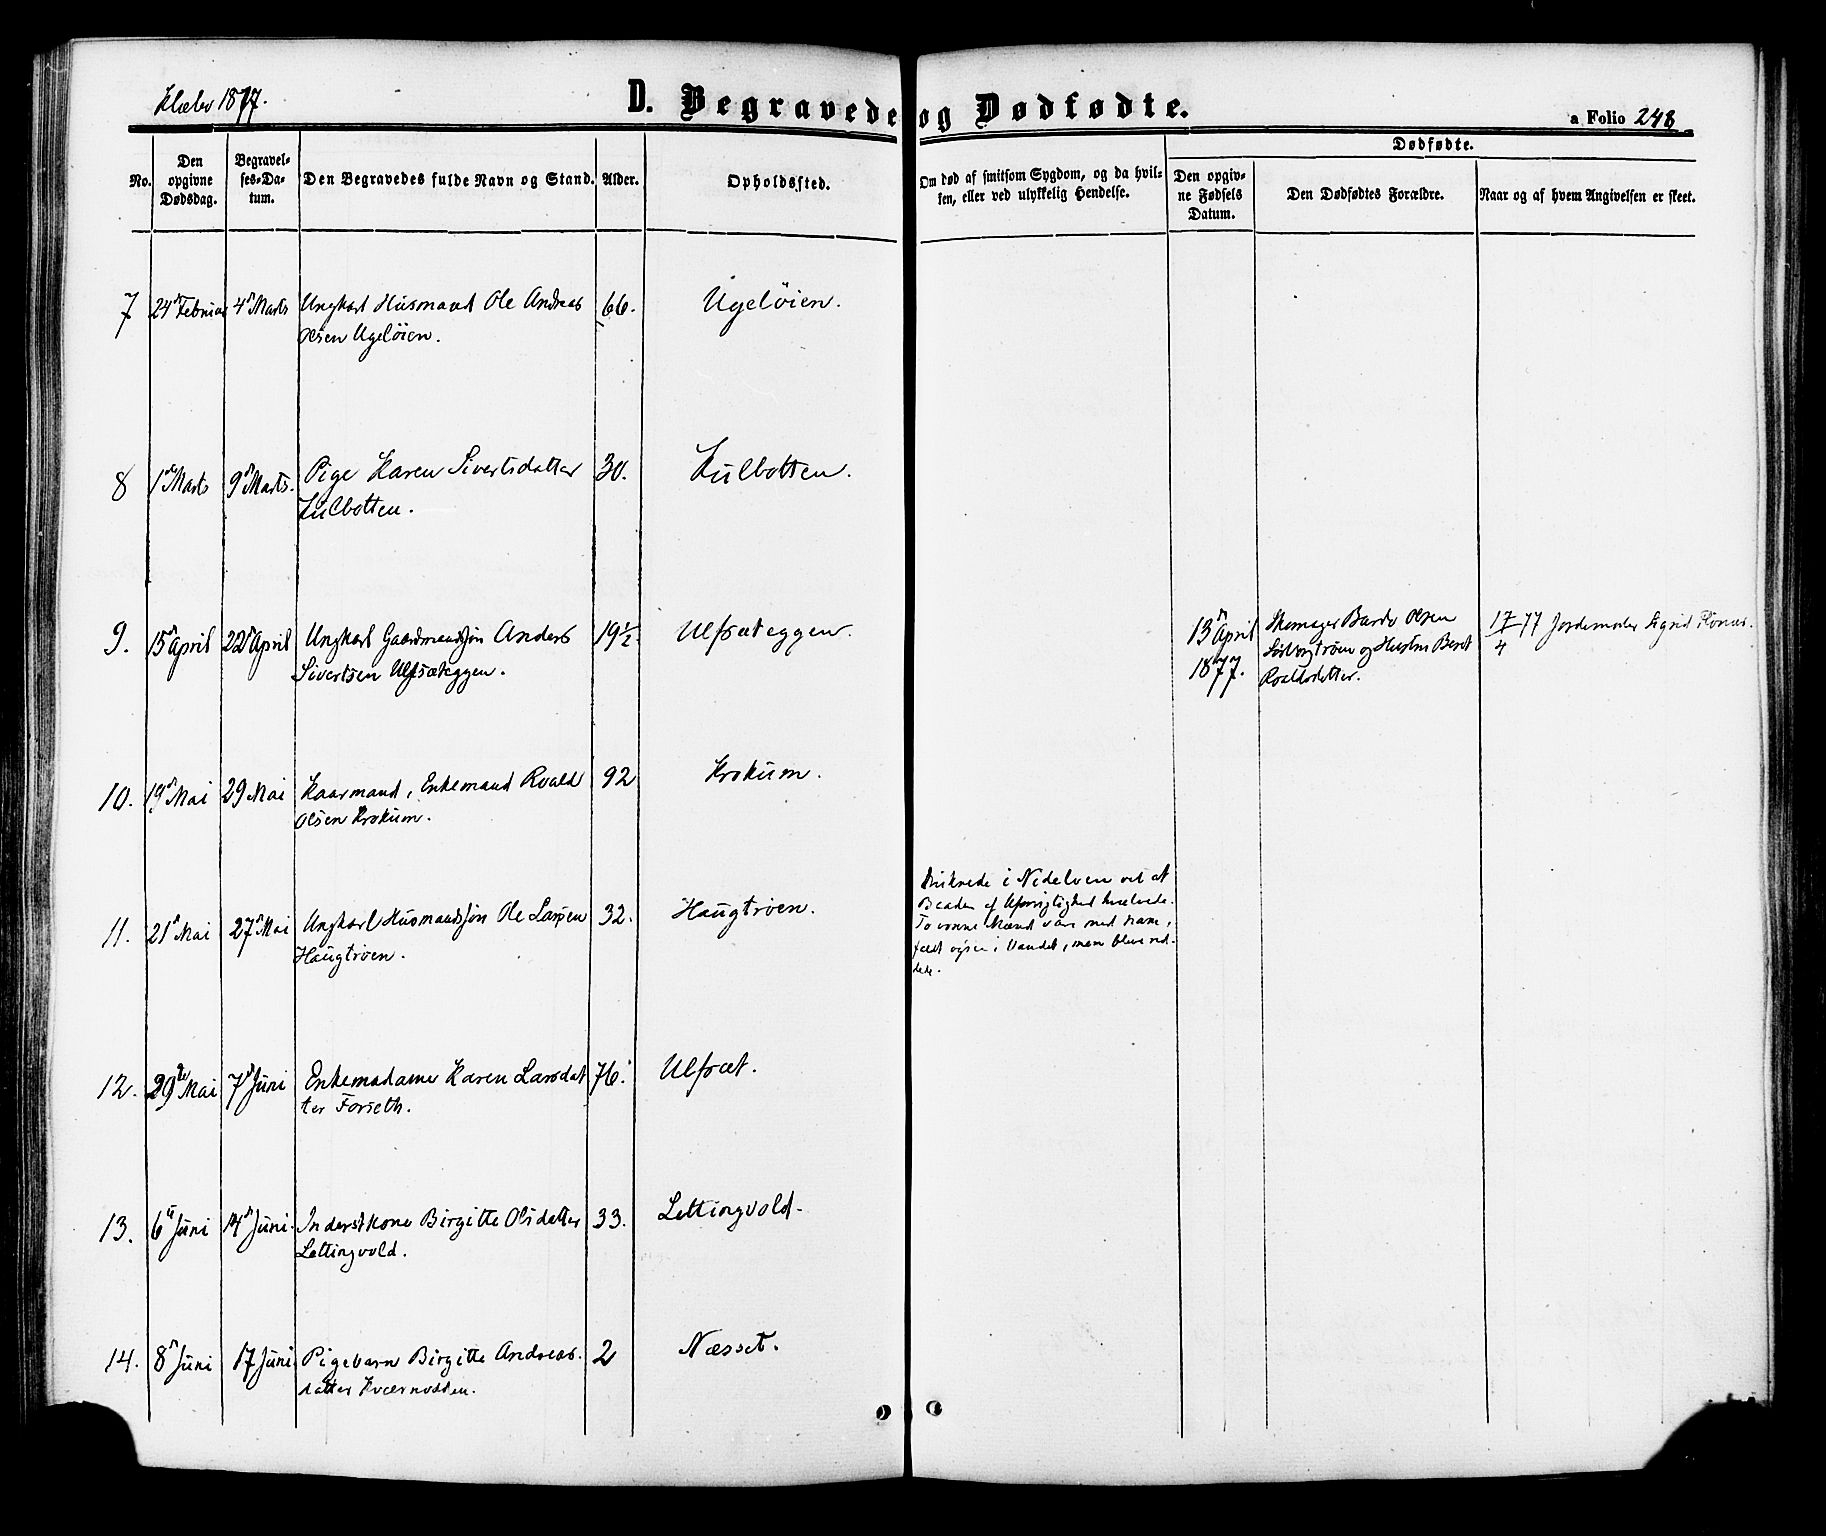 Klæbo 1877.
D. Begravede og Dødfødte.
a Folio 248
Dødfødte.
No.
Den opgivne Dødsdag.
Begravel-
ses-Da-
tum.
Den Begravedes fulde Navn og Stand.
Alder.
Opholdssted.
Om død af smitsom Sygdom, og da hvil-
ken, eller ved ulykkelig Hendelse.
Den opgiv-
ne Fødsels
Datum.
Den Dødfødtes Forældre.
Naar og af hvem Angivelsen er skeet.
7 24d Februar 4d Marts Ungkarl Husmand Ole Andreas 66. Ugeløien.
Olsen Ugeløien.
8 1d Marts 9d Marts. Pige Karen Sivertsdatter 30. Kulbotten.
Kulbotten.
9. 15d April 22d April Ungkarl Gaardmandssøn Anders 19½. Ulfsæteggen.
Sivertsen Ulfsæteggen.
13d April
1877.
Skomager Bardo Olsen
og Hustru Beret
Roaldsdatter.
17/4 77 Jordemoder Sigrid
10. 19d Mai 29 Mai Kaarmand, Enkemand Roald 92 Krokum.
Olsen Krokum.
11. 21d Mai 27d Mai Ungkarl Husmandssøn Ole Larsen 32. Haugtrøen.
Haugtrøen.
Druknede i Nidelven ved at
Baaden af Uforsigtighed hvelvede.
To vonne Mænd vare med ham,
faldt ogsaa i Vandet, men bleve red-
dede.
12. 29de Mai 7d Juni Enkemadame Karen Larsdat 76. Ulfsæt.
ter Forseth.
13. 6te Juni 14d Juni. Inderstkone Birgitte Olsdatter 33. Lettingvold.
Lettingvold.
14. 8d Juni 17 Juni Pigebarn Birgitte Andreas- 2 Næsset.
datter Kværnodden.